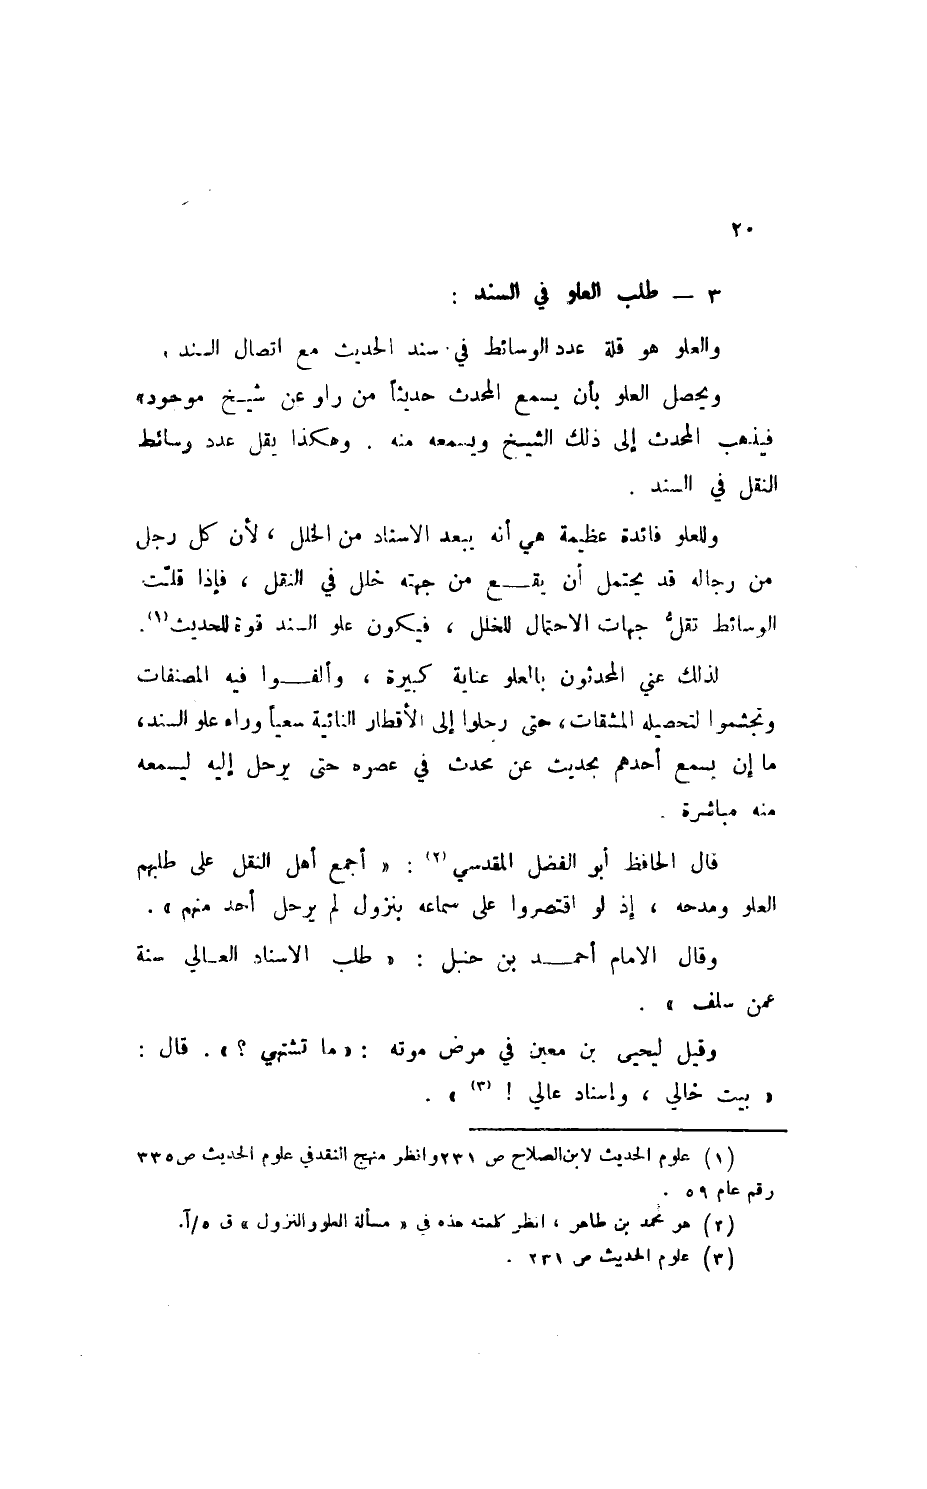 ٢٠
٣ — طلب العلو في السند :
والعلو هو قلة عدد الوسائط في سند الحديث مع اتصال السند ،
ويحصل العلو بأن يسمع المحدث حديثاً من راو عن شيخ موجود،
فيذهب المحدث إلى ذلك الشيخ ويسمعه منه . وهكذا يقل عدد وسائط
النقل في السند .
وللعلو فائدة عظيمة هي أنه يبعد الاسناد من الخلل ، لأن كل رجل
من رجاله قد يحتمل أن يقـــع من جهته خلل في النقل ، فإذا قلّت
الوسائط تقلُّ جهات الاحتمال للخلل ، فيكون علو السند قوة للحديث(١).
لذلك عني المحدثون بالعلو عناية كبيرة ، وألفـــوا فيه المصنفات
وتجشموا لتحصيله المشقات، حتى رحلوا إلى الأقطار النائية سعياً وراء علو السند،
ما إن يسمع أحدهم بحديث عن محدث في عصره حتى يرحل إليه ليسمعه
منه مباشرة .
قال الحافظ أبو الفضل المقدسي(٢) : « أجمع أهل النقل على طلبهم
العلو ومدحه ، إذ لو اقتصروا على سماعه بنزول لم يرحل أحد منهم » .
وقال الامام أحمـــد بن حنبل : « طلب الاسناد العالي سنة
عمن سلف » .
وقيل ليحيى بن معين في مرض موته : « ما تشتهي ؟ » . قال :
« بيت خالي ، وإسناد عالي ! (٣) » .
(١) علوم الحديث لابن الصلاح ص ٢٣١ وانظر منهج النقد في علوم الحديث ص ٣٣٥
رقم عام ٥٩ .
(٢) هو محمد بن طاهر ، انظر كلمته هذه في « مسألة العلو والنزول » ق ٥/آ.
(٣) علوم الحديث ص ٢٣١ .